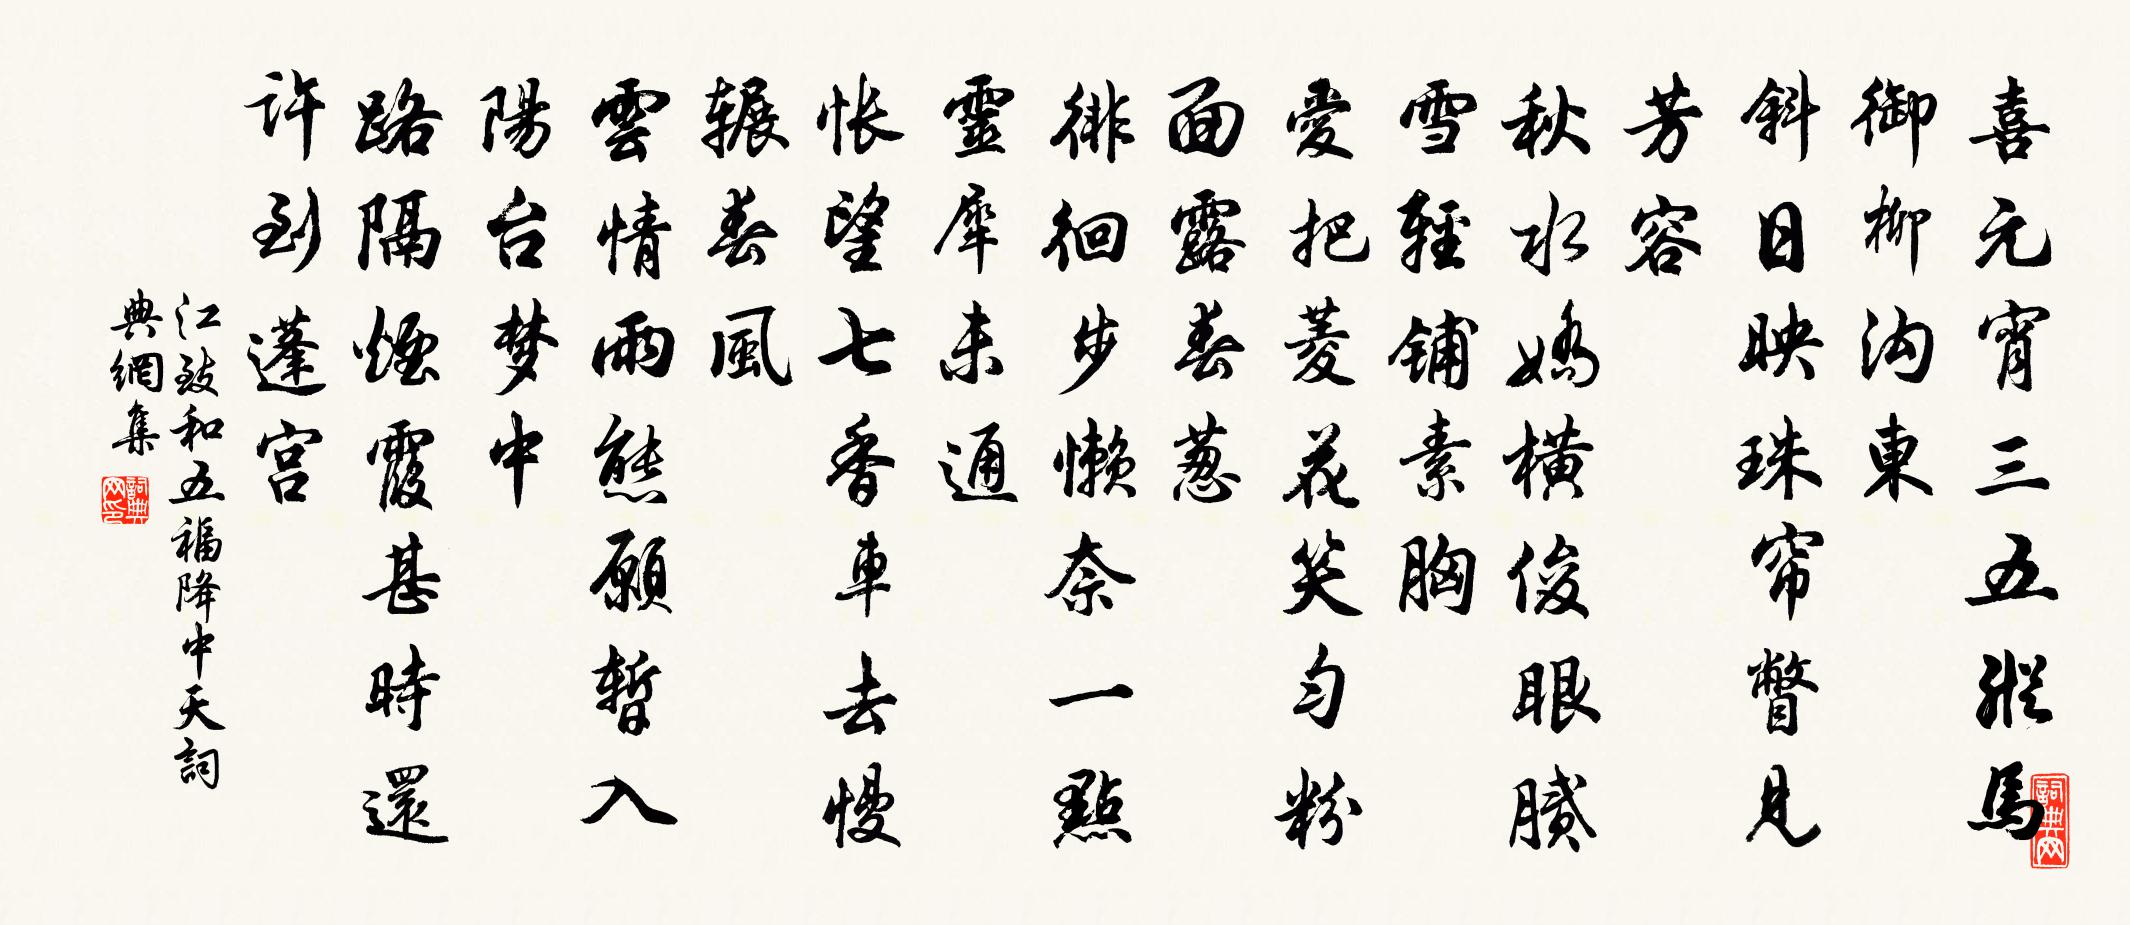 喜元宵三五縱馬
御柳沟東
斜日映珠帘瞥見
芳容
秋水嬌橫俊眼膩
雪輕鋪素胸
愛把菱花笑匀粉
面露春葱
徘徊步懶奈一點
靈犀未通
怅望七香車去慢
輾春風
雲情雨態願暫入
陽台梦中
路隔煙霞甚時還
許到蓬宫
江致和五福降中天詞
典網集
詞典网
詞典网印